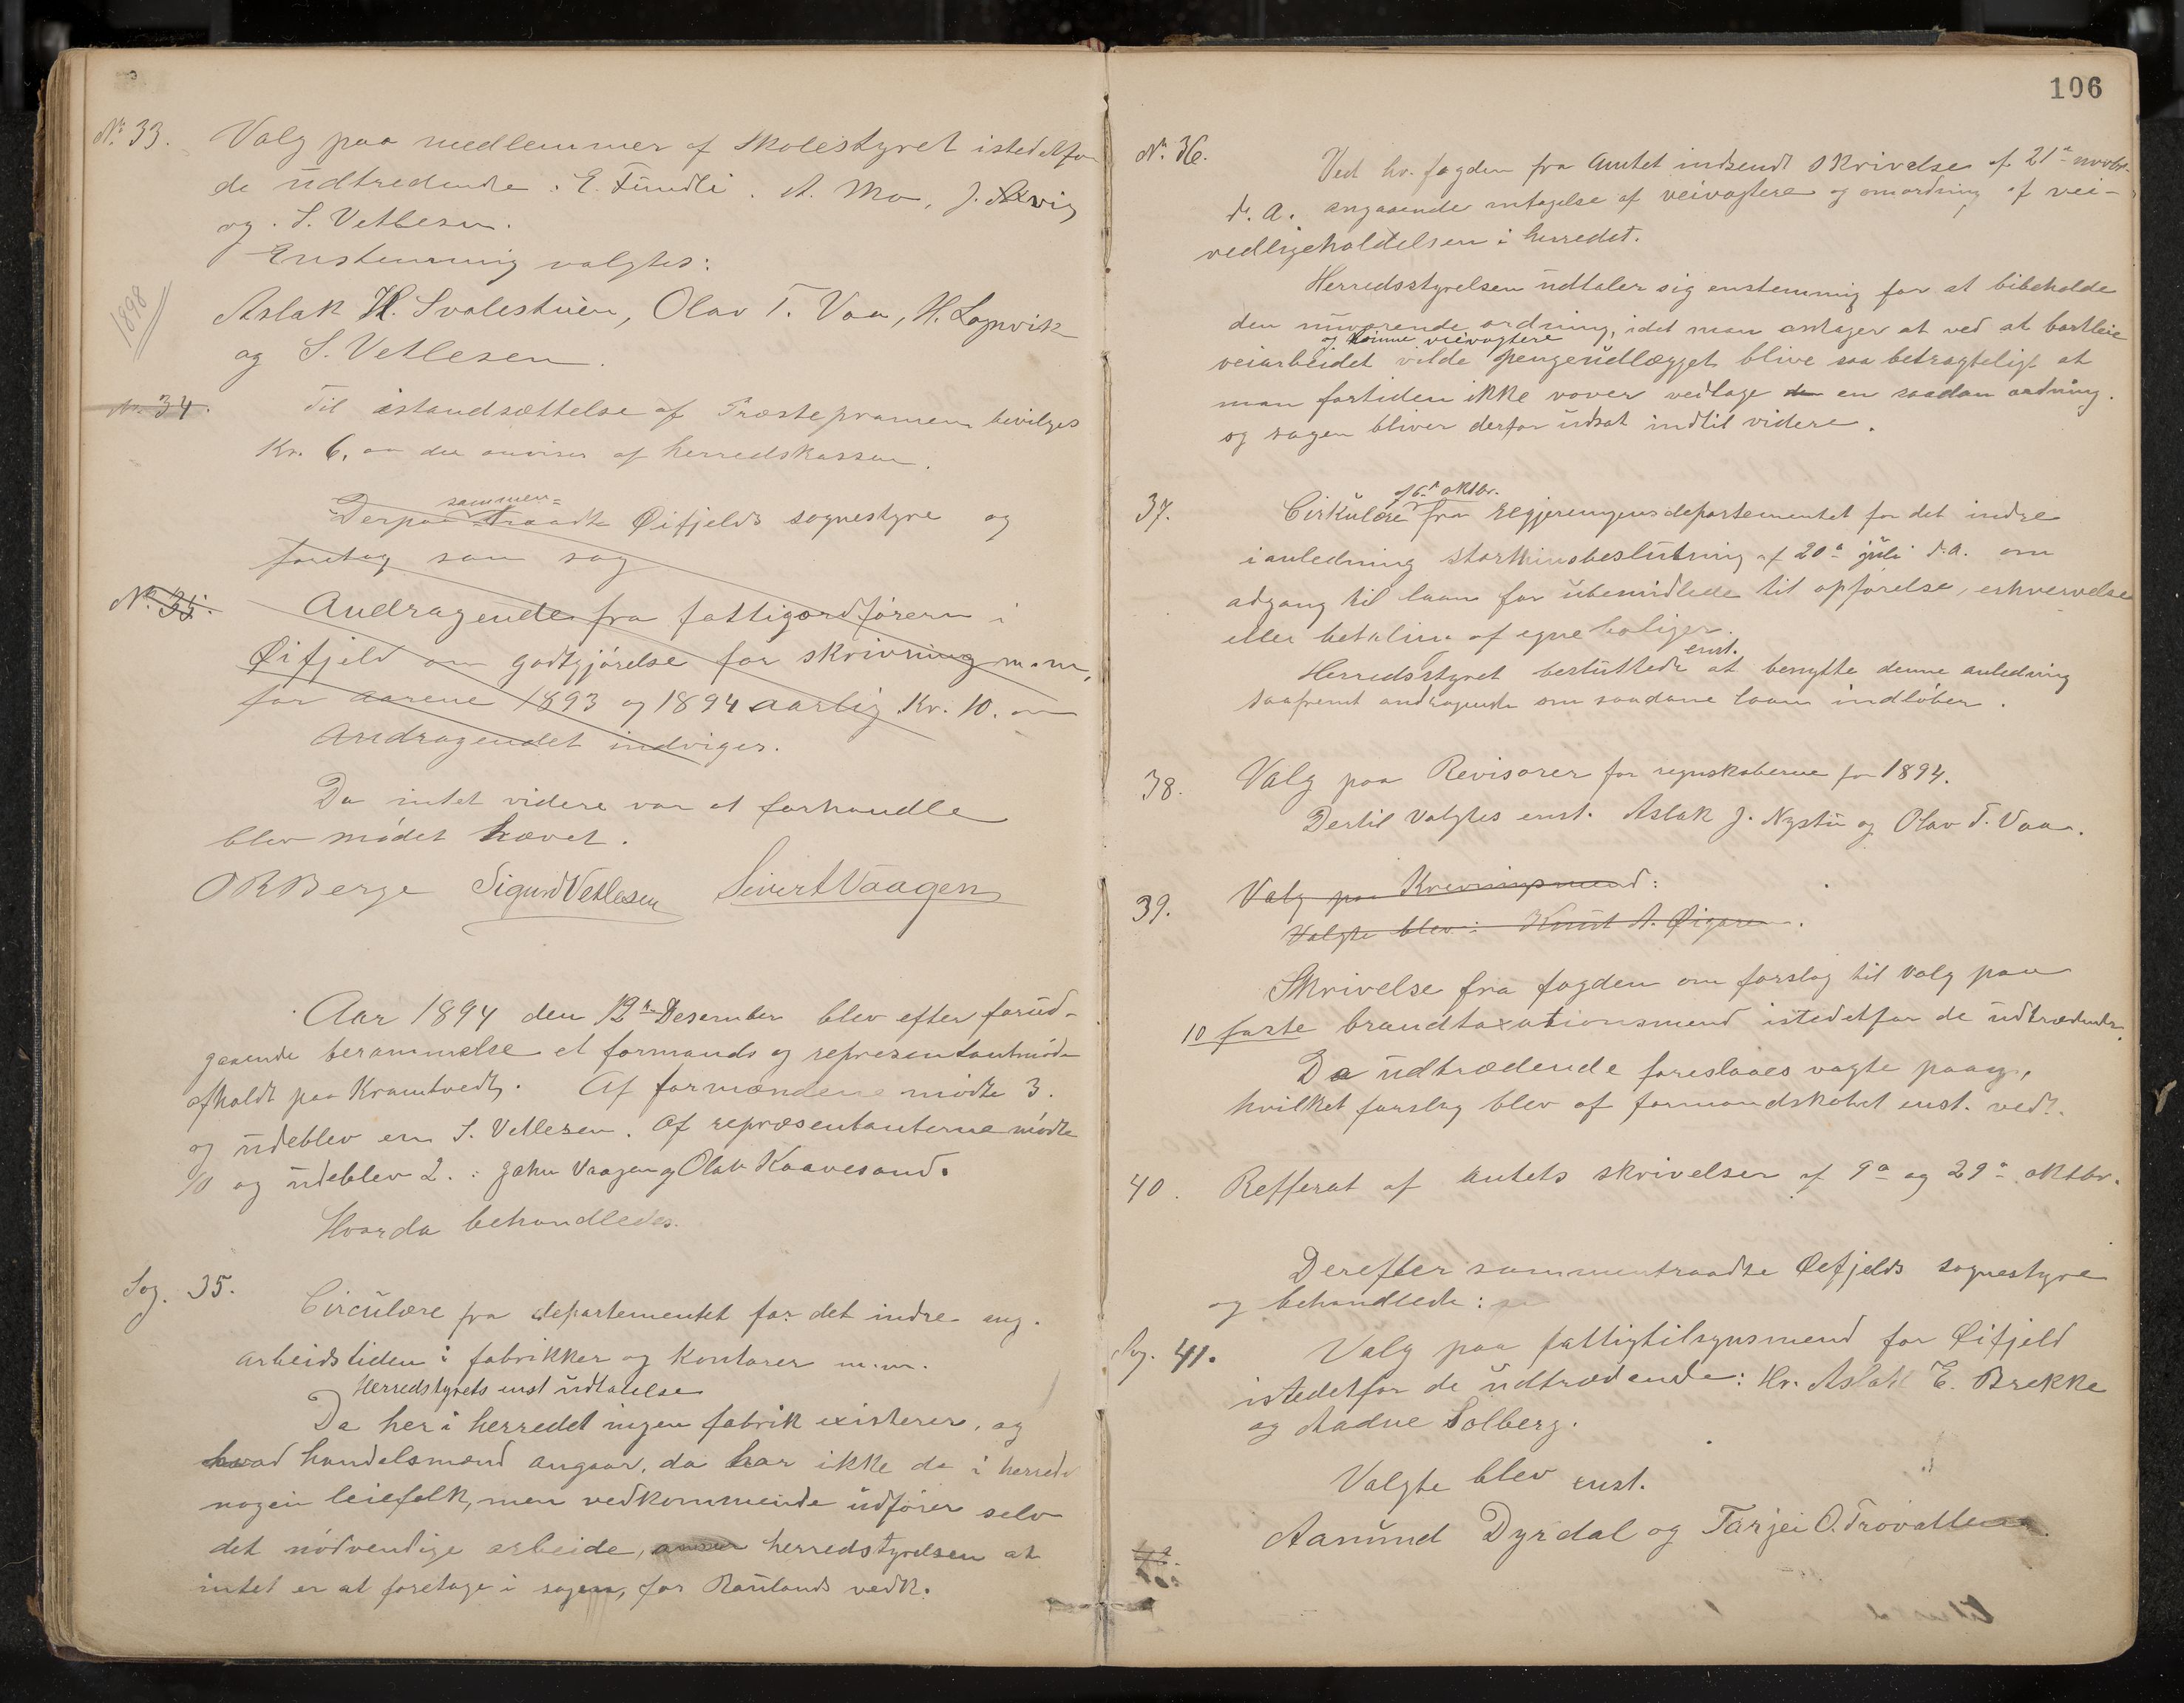 No. 33. Valg paa medlemmer af Skolestyret istedetfor
de udtredende: E. Tundli. A. Mo, J.
og S. Vetlesen.
Enstemmig valgtes:
1898
Aslak K. Svalestuen, Olav T. Vaa, H. Lognvik
og S. Vetlesen.
No. 34. Til istandsættelse af Præstepramen bevilges
Kr. 6, af herredskassen.
sammen=
Derpaa traadte Øifjelds sognestyre og
foretog som sag
No. 35. Andragende fra fattigordførern i
Øifjeld om godtgjørelse for skrivning m.m.
for aarene 1893 og 1894 aarlig Kr. 10.
Andragendet indviges.
Da intet videre var at forhandle
blev mødet hævet.
O R Berge Sigurd Vetlesen Sivert Vaagen
Aar 1894 den 12te Desember blev efter forud-
gaaende berammelse et formands og representantmøde
afholdt paa Kramtvedt. Af formændene mødte 3.
og udeblev en S. Vetlesen. Af repræsentanterne mødte
10 og udeblev 2. : John Vaagen og Olav Kaavesand.
Hvorda behandledes.
Sag. 35. Circulære fra departementet for det indre ang.
arbeidstiden i fabrikker og kontorer m.m.
Herredstyrets enst udtalelse
Da her i herredet ingen fabrik existerer, og
hvad handelsmænd angaar, da har ikke de i herredet
nogen leiefolk, men vedkommende udfører selv
det nødvendige arbeide, anser herredstyrelsen at
intet er at foretage i sagen, for Raulands vedk.
106
No. 36. Ved hr. fogden fra Amtet indsendt skrivelse af 21de novbr.
d. A. angaaende antagelse af veivogtere og omordning af vei-
vedligeholdelsen i herredet.
Herredsstyrelsen udtaler sig enstemmig for at bibeholde
den nuværende ordning, idet man antager at ved at bortleie
og lønne veivogtere
veiarbeidet vilde pengeudlægget blive saa betragteligt at
man fortiden ikke vover vedtage de en saadan ordning.
og sagen bliver derfor udsat indtil videre.
af 6te oktbr.
37. Cirkulære fra Regjeringens departementet for det indre
i anledning storthinsbeslutning af 20de juli d.A. om
adgang til laan for ubemidlede til opførelse, erhvervelse
eller betaling af egne boliger.
enst.
Herredsstyret besluttede at benytte denne anledning
saafremt andragende om saadane laan indløber.
38. Valg paa Revisorer for regnskaberne for 1894.
Dertil valgtes enst. Aslak J. Nystu og Olav T. Vaa.
39. Valg paa Krevningsmend:
Valgte blev: Knut A. Øigaren.
Skrivelse fra fogden om forslag til valg paa
10 faste brandtaxationsmend istedetfor de udtrædende.
De udtrædende foreslaaes valgte paany,
hvilket forslag blev af formandskabet enst. vedt.
40. Refferat af Amtets skrivelser af 9de og 29de oktbr.
Derefter sammentraadte Øefjelds sognestyre
og behandlede:
Sag. 41. Valg paa fattigtilsynsmend for Øifjeld
istedetfor de udtrædende: Hr. Aslak E. Brekke
og Aadne Solberg.
Valgte blev enst.
Aamund Dyrdal og Tarjei O. Trovatten.
42.